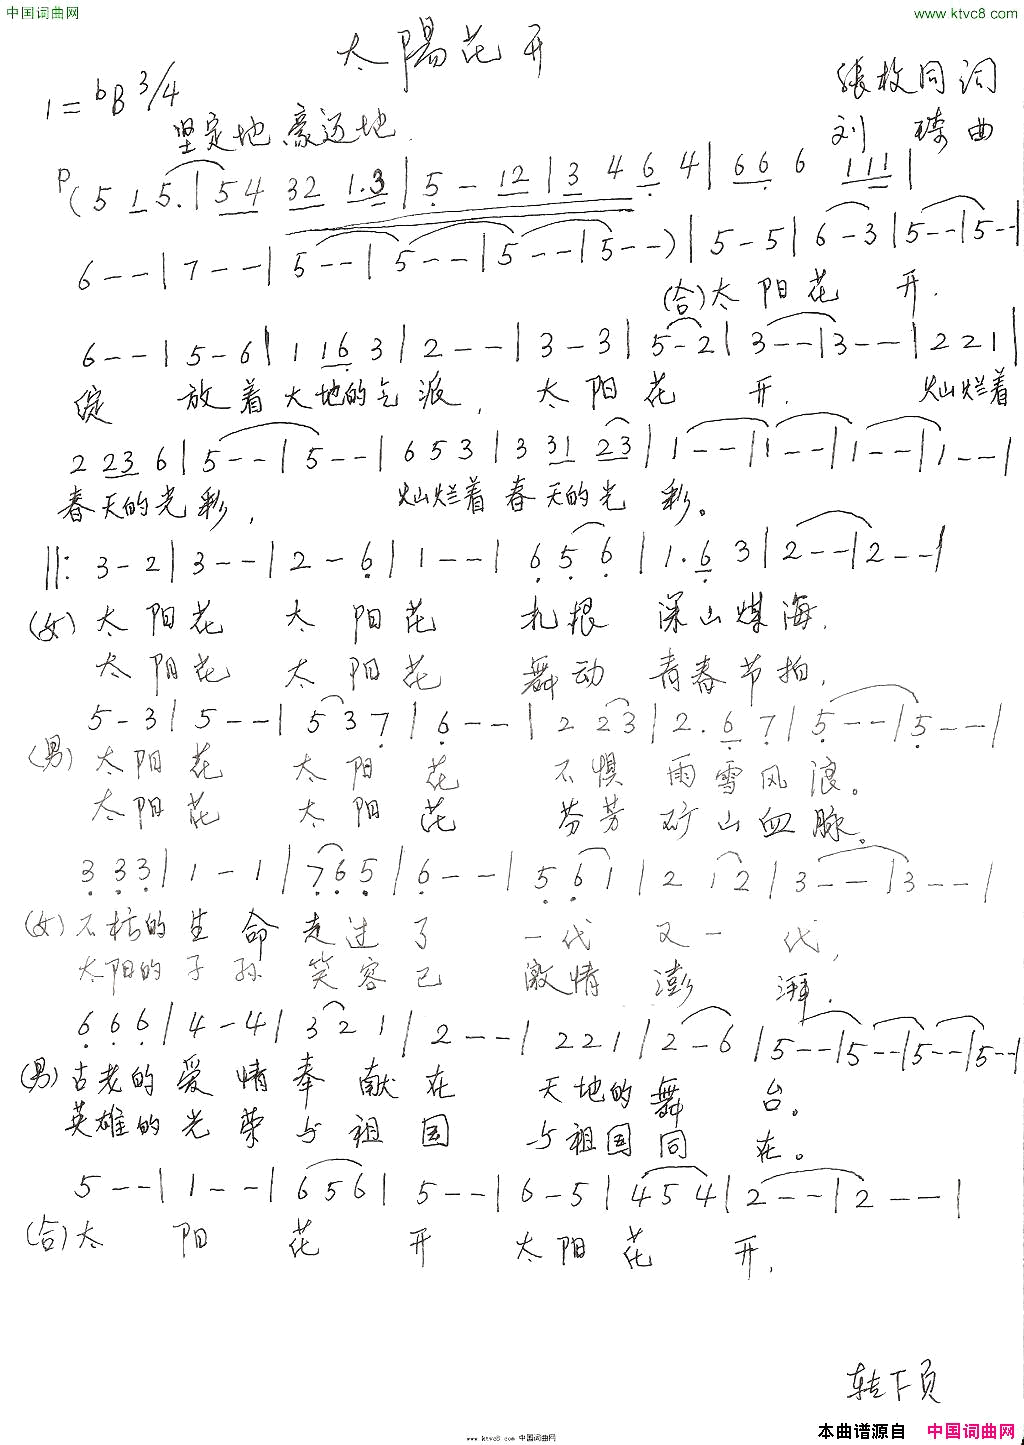 中国词曲网
www.ktvc8.com
太陽花开
1=bB 3/4
张枚同词
坚定地 豪迈地
刘 琦 曲
P(5 1 5.|54 32 1.3|5 - 12|3 4 6 4|66 6 111|
6--|7--|5--|5--|5--|5--)|5-5|6-3|5--|5--|
(合)太阳花 开.
6--|5-6|1 16 3|2--|3-3|5-2|3--|3--|221|
绽 放着大地的气派, 太阳花 开. 灿烂着
2 23 6|5--|5--|653|3 31 23|1--|1--|1--|1--|
春天的光彩, 灿烂着春天的光 彩。
||:3-2|3--|2-6|1--|6 5 6|1.6 3|2--|2--|
(女)太阳花 太阳花 扎根 深山煤海,
太阳花 太阳花 舞动 青春节拍,
5-3|5--|537|6--|2 23|2.6 7|5--|5--|
(男)太阳花 太阳花 不惧 雨雪风浪。
太阳花 太阳花 芬芳 矿山血脉。
333|1-1|765|6--|561|2 12|3--|3--|
(女)不朽的生命走过了 一代 又一代,
太阳的子孙笑容已 激情 澎湃.
666|4-4|321|2--|221|2-6|5--|5--|5--|5--|
(男)古老的爱情奉献在 天地的舞 台。
英雄的光荣与祖国 与祖国同 在。
5--|1--|656|5--|6-5|454|2--|2--|
(合)太 阳 花 开 太阳花 开,
转下页
本曲谱源自 中国词曲网
www.ktvc8 中国词曲网